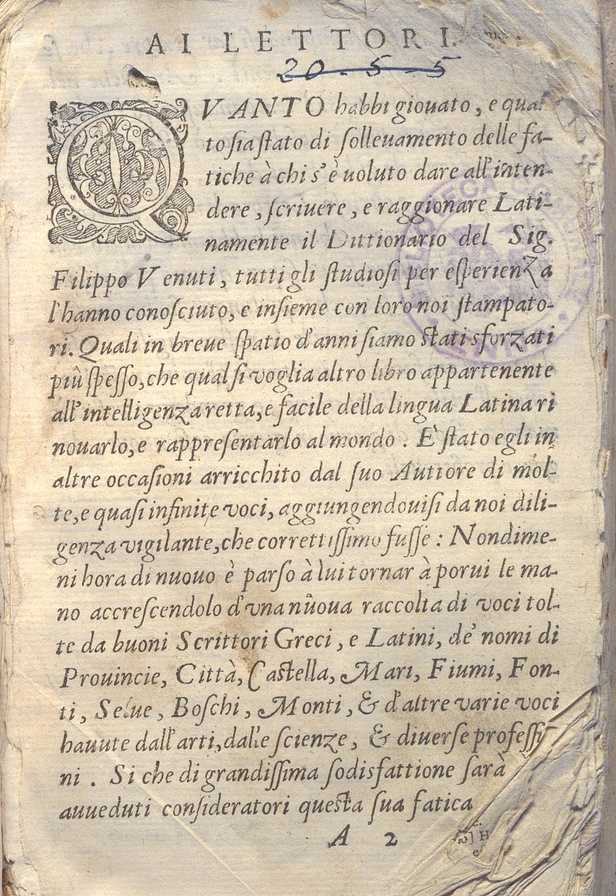 AI LETTORI.
20-5-5
QVANTO habbi giouato, e quan
to sia stato di solleuamento delle fa-
tiche à chi s'è voluto dare all'inten-
dere, scriuere, e raggionare Lati-
namente il Dittionario del Sig.
Filippo Venuti, tutti gli studiosi per esperienza
l'hanno conosciuto, e insieme con loro noi stampato-
ri. Quali in breue spatio d'anni siamo stati sforzati
più spesso, che qual si voglia altro libro appartenente
all'intelligenza retta, e facile della lingua Latina ri
nouarlo, e rappresentarlo al mondo. È stato egli in
altre occasioni arricchito dal suo Auttore di mol-
te, e quasi infinite voci, aggiungendouisi da noi dili-
genza vigilante, che correttissimo fusse: Nondime-
ni hora di nuouo è parso à lui tornar à porui le ma-
no accrescendolo d'vna nuoua raccolta di voci tol-
te da buoni Scrittori Greci, e Latini, de' nomi di
Prouincie, Città, Castella, Mari, Fiumi, Fon-
ti, Selue, Boschi, Monti, & d'altre varie voci
hauute dall'arti, dalle scienze, & diuerse professi
ni. Si che di grandissima sodisfattione sarà
auueduti consideratori questa sua fatica
A 2